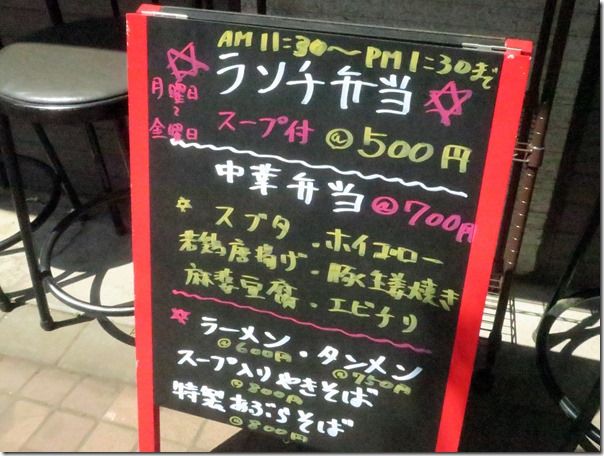 AM 11:30〜PM 1:30まで
ランチ弁当
月曜日
〜
金曜日
スープ付 @500円
中華弁当@700円
☆ スブタ ・ホイコーロー
若鶏唐揚げ ・豚生姜焼き
麻婆豆腐 ・エビチリ
☆ ラーメン ・タンメン
@600円 @750円
スープ入りやきそば
@800円
特製あぶらそば
@800円